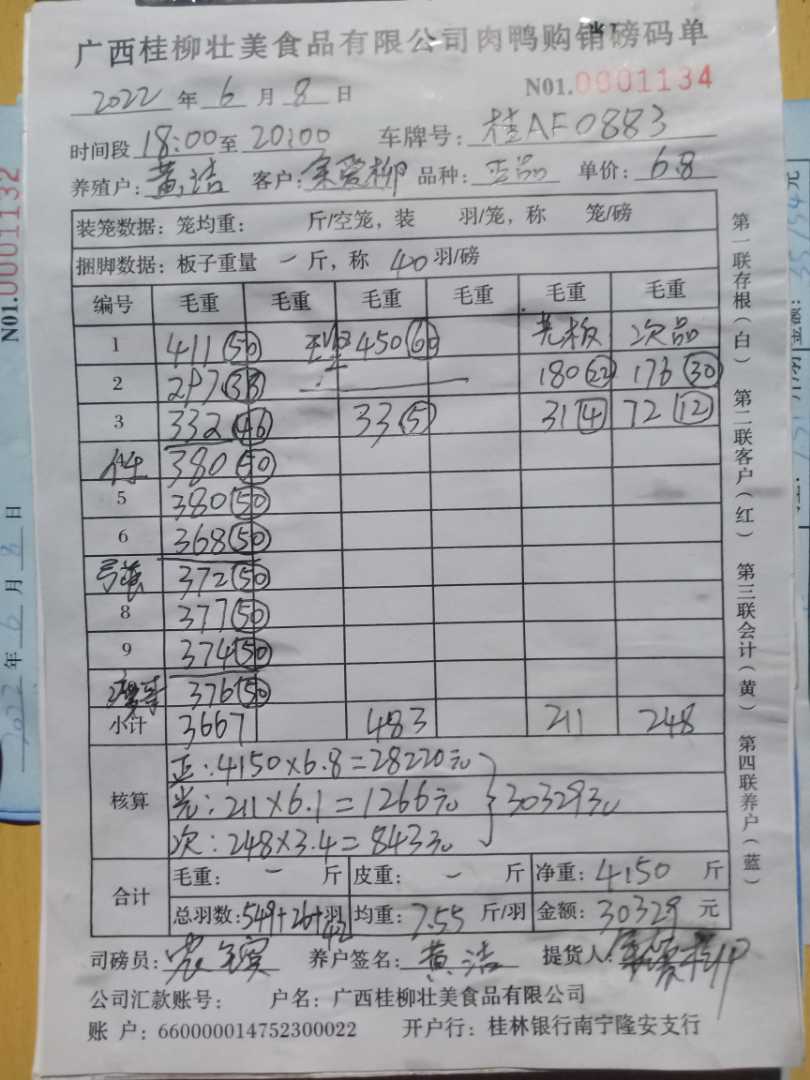 广西桂柳壮美食品有限公司肉鸭购销磅码单
2022 年 6 月 8 日 N01.0001134
时间段 18:00 至 20:00 车牌号: 桂AF0883
养殖户: 黄洁 客户: 余爱柳 品种: 正品 单价: 6.8
装笼数据: 笼均重: 斤/空笼, 装 羽/笼, 称 笼/磅
捆脚数据: 板子重量 一 斤, 称 40 羽/磅
编号 毛重 毛重 毛重 毛重 毛重 毛重
1 411(50) 450(60) 光板 次品
2 297(38) 180(22) 176(30)
3 332(46) 33(5) 31(4) 72(12)
380(50)
5 380(50)
6 368(50)
372(50)
8 377(50)
9 374(50)
376(50)
小计 3667 483 211 248
核算
正:4150×6.8=28220元
光:211×6.1=1266元 30329元
次:248×3.4=843元
合计
毛重: 一 斤 皮重: 一 斤 净重: 4150 斤
总羽数: 549+26+42 羽 均重: 7.55 斤/羽 金额: 30329 元
司磅员: 养户签名: 黄洁 提货人: 余爱柳
公司汇款账号: 户名: 广西桂柳壮美食品有限公司
账 户: 660000014752300022 开户行: 桂林银行南宁隆安支行
第一联存根(白) 第二联客户(红) 第三联会计(黄) 第四联养户(蓝)
N01.0001132
2022 年 6 月 8 日